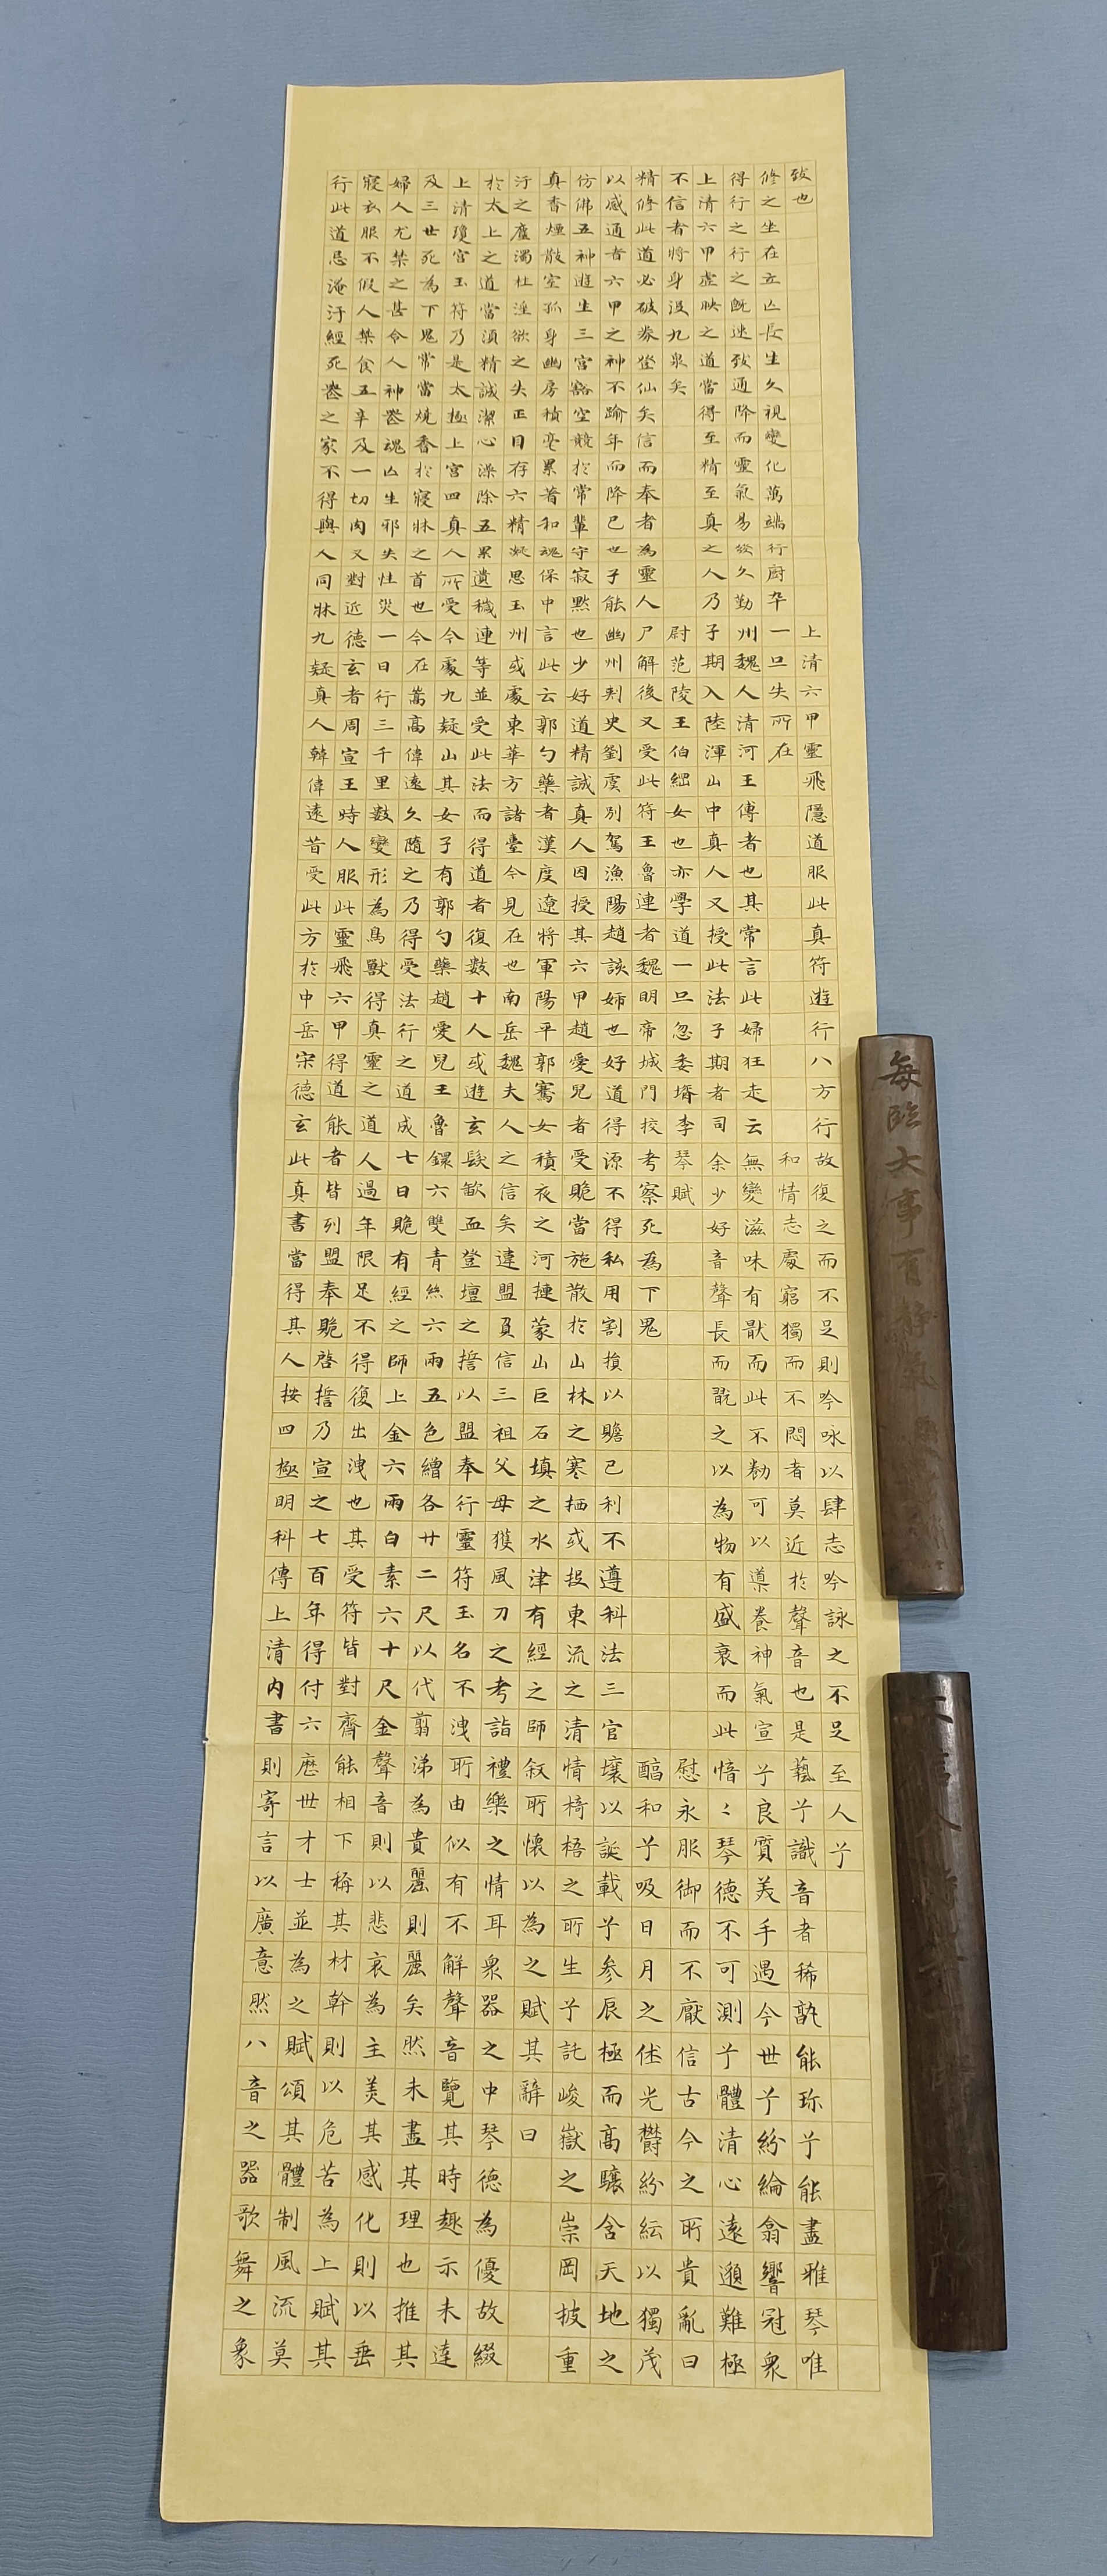 行此道忌淹汙經死喪之家不得與人同牀
寢衣服不假人禁食五辛及一切肉又對近
婦人尤禁之甚令人神喪魂亡生邪失性災
及三世死為下鬼常當燒香於寢牀之首也
上清瓊宮玉符乃是太極上宮四真人所受
於太上之道當須精誠潔心澡除五累遺穢
汙之廬濁杜淫欲之失正目存六精凝思玉
真香煙散室孤身幽房積毫累著和魂保中
仿佛五神遊生三宮豁空競於常輩守寂默
以感通者六甲之神不踰年而降已也子能
精修此道必破券登仙矣信而奉者為靈人
不信者將身沒九泉矣
上清六甲虛映之道當得至精至真之人乃
得行之行之既速致通降而靈氣易發久勤
修之坐在立亡長生久視變化萬端行廚卒
致也
九疑真人韓偉遠昔受此方於中岳宋德玄
德玄者周宣王時人服此靈飛六甲得道能
一日行三千里數變形為鳥獸得真靈之道
今在嵩高偉遠久隨之乃得受法行之道成
今處九疑山其女子有郭勺藥趙愛兒王魯
連等並受此法而得道者復數十人或遊玄
州或處東華方諸臺今見在也南岳魏夫人
言此云郭勺藥者漢度遼將軍陽平郭騫女
也少好道精誠真人因授其六甲趙愛兒者
幽州刺史劉虞別駕漁陽趙該姊也好道得
尸解後又受此符王魯連者魏明帝城門校
尉范陵王伯綱女也亦學道一旦忽委壻李
子期入陸渾山中真人又授此法子期者司
州魏人清河王傅者也其常言此婦狂走云
一旦失所在
上清六甲靈飛隱道服此真符遊行八方行
此真書當得其人按四極明科傳上清內書
者皆列盟奉貺啓誓乃宣之七百年得付六
人過年限足不得復出洩也其受符皆對齊
七日貺有經之師上金六兩白素六十尺金
鐶六雙青絲六兩五色繒各廿二尺以代翦
髮歃血登壇之誓以盟奉行靈符玉名不洩
之信矣違盟負信三祖父母獲風刀之考詣
積夜之河摙蒙山巨石填之水津有經之師
受貺當施散於山林之寒栖或投東流之清
源不得私用割損以贍己利不遵科法三官
考察死為下鬼
琴賦
余少好音聲長而翫之以為物有盛衰而此
無變滋味有猒而此不勌可以導養神氣宣
和情志處窮獨而不悶者莫近於聲音也是
故復之而不足則吟咏以肆志吟詠之不足
則寄言以廣意然八音之器歌舞之象
歷世才士並為之賦頌其體制風流莫
能相下稱其材幹則以危苦為上賦其
聲音則以悲哀為主美其感化則以垂
涕為貴麗則麗矣然未盡其理也推其
所由似有不解聲音覽其時趣示未達
禮樂之情耳眾器之中琴德為優故綴
敘所懷以為之賦其辭曰
情椅梧之所生兮託峻嶽之崇岡披重
壤以誕載兮參辰極而高驤含天地之
醇和兮吸日月之休光鬱紛紜以獨茂
慰永服御而不厭信古今之所貴亂曰
愔〻琴德不可測兮體清心遠邈難極
兮良質美手遇今世兮紛綸翕響冠眾
藝兮識音者稀孰能珍兮能盡雅琴唯
至人兮
每臨大事有靜氣